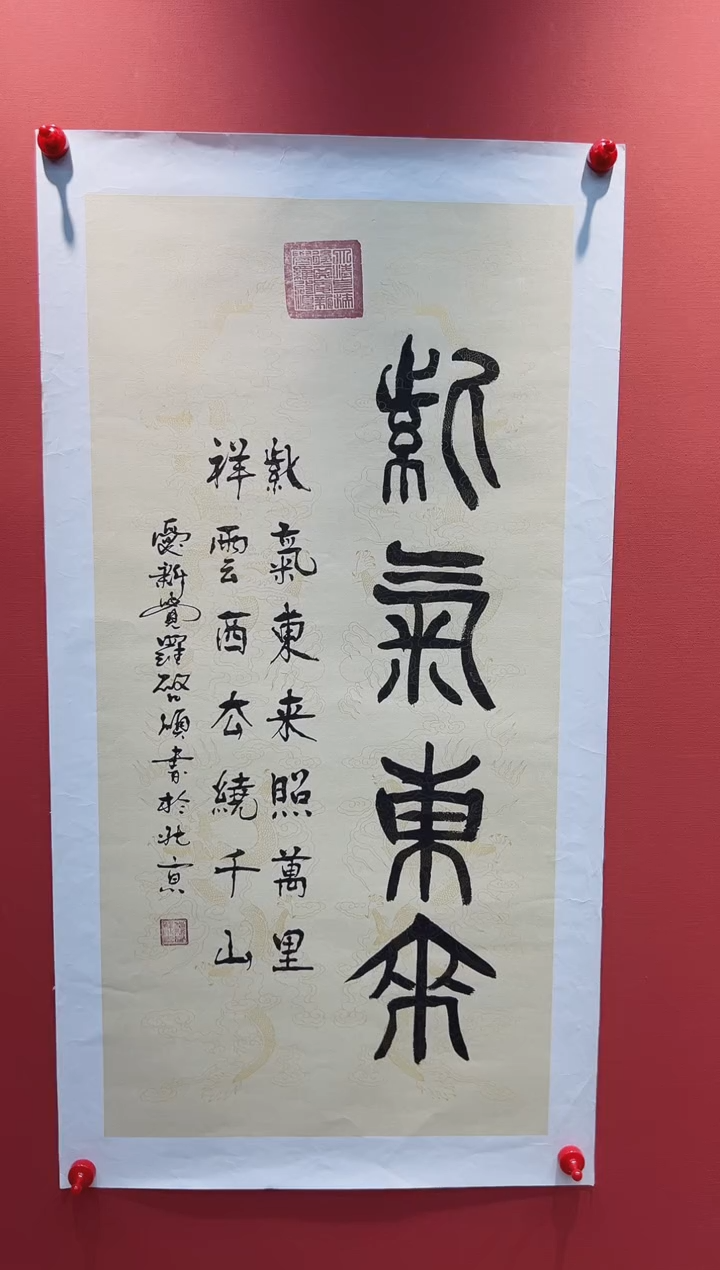 紫氣東来
紫氣東来照萬里
祥雲西去繞千山
愛新覺羅啓碩書於北京